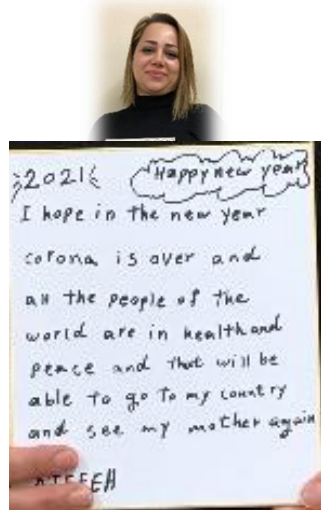 2021
Happy new year
I hope in the new year
corona is over and
all the people of the
world are in health and
peace and that will be
able to go to my country
and see my mother again